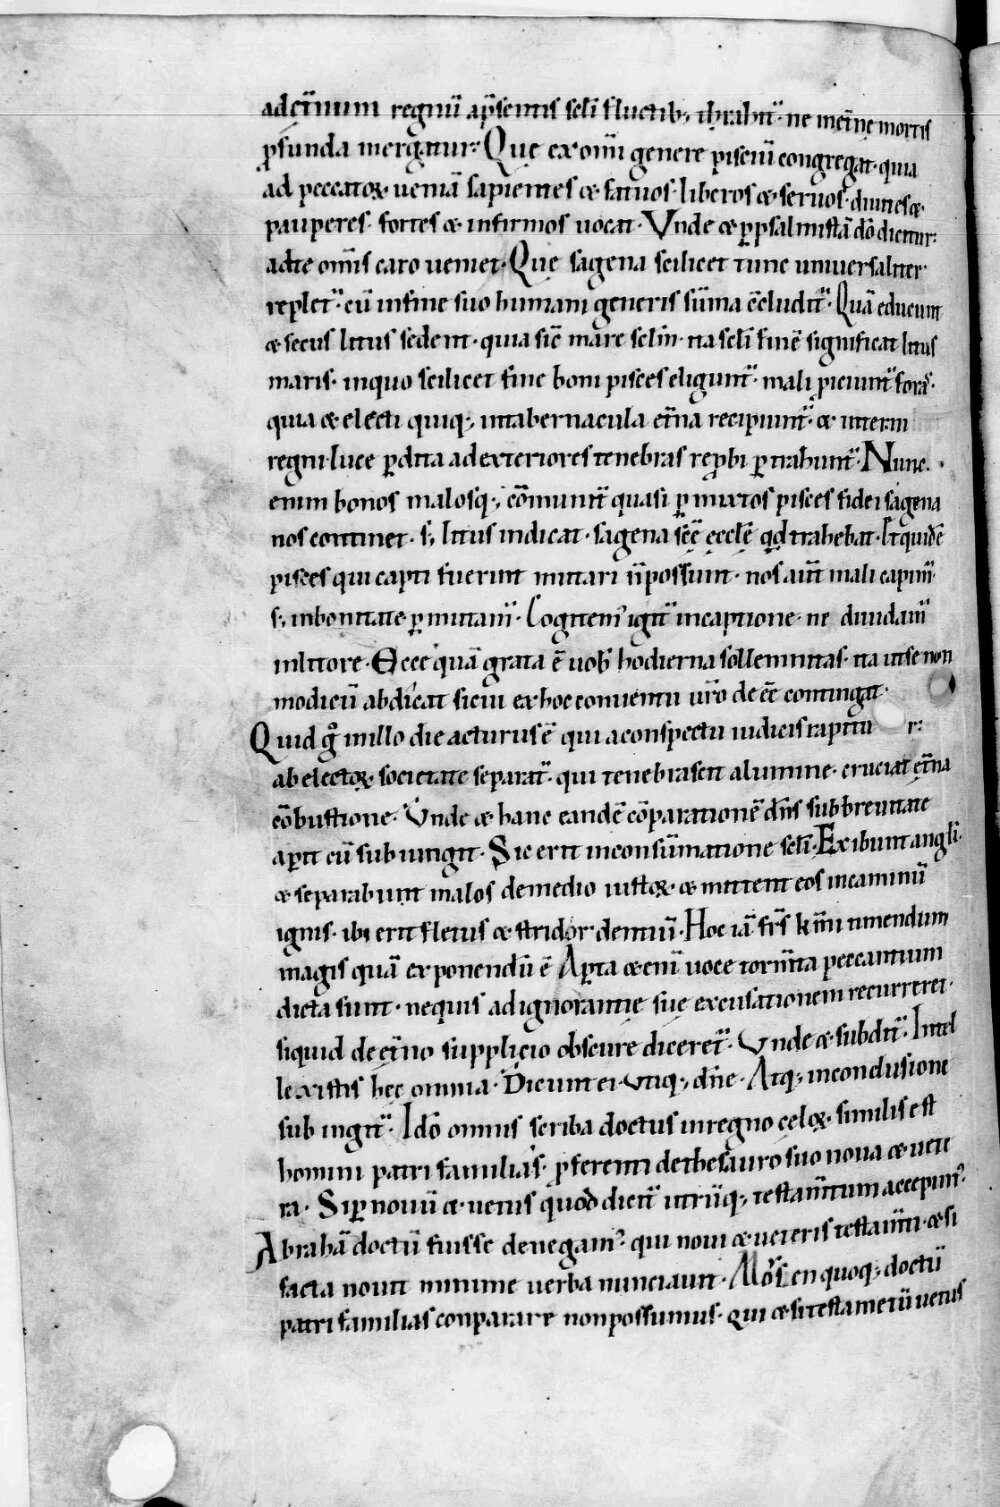 adet̄num regnū ap̄sentis seclī fluctib; ꝑtrahit᷑· ne inet̄ne mortis
ꝓfunda mergatur· Que ex om̄i genere pisciū congregat· quia
ad peccatoꝝ ueniā sapientes & fatuos· liberos & seruos· diuites &
pauperes· fortes & infirmos uocat· Vnde & ꝑ psalmistā dō dicitur·
adte om̄is caro ueniet· Que sagena scilicet tunc uniuersaliter
replet᷑· cū infine suo humani generis sūma c̄cludit᷑· Quā educunt
& secus litus sedent· quia sic̄ mare sclm̄· ita sclī finē significat litus
maris· inquo scilicet fine boni pisces eligunt᷑· mali ꝓiciunt᷑ foras·
quia & electi quiq; intabernacula et̄na recipiunt᷑· & int̄erni
regni luce ꝑdita adexteriores tenebras reꝓbi ꝑtrahunt᷑· Nunc
enim bonos malosq; cōmunit᷑ quasi ꝑmixtos pisces fidei sagena
nos continet· s; litus indicat· sagena sc̄e ecclē qđ trahebat· Et quidē
pisces qui capti fuerint mutari n̄ possunt· nos aut̄ mali capim᷑·
s; inbonitate ꝑmutam᷑· Cogitem᷑ igit᷑ incaptione· ne diuidam᷑
inlitore· Ecce quā grata ē uob̄ hodierna sollemnitas· ita utse non
modicū abdicat sicui ex hoc conuentu ur̄o deēe contingat·
Quid g̊ inillo die acturus ē qui aconspectu iudicis rapitu r·
ab electoꝝ societate separat᷑· qui tenebrascit alumine· cruciat et̄na
cōbustione· Vnde & hanc eandē cōparationē dn̄s subbreuitate
aꝑit cū subiungit· Sic erit inconsūmatione sclī· Exibunt angli·
& separabunt malos demedio iustoꝝ· & mittent eos incaminū
ignis· ibi erit fletus & stridor dentiū· Hoc iā fr̄s km̄i timendum
magis quā exponendū ē Aꝑta & eni᷑ uoce torm̄ta peccantium
dicta sunt· nequis adignorantie sue excusationem recurreret·
siquid deet̄no supplicio obscure diceret᷑· Vnde & subdit᷑· Intel
lexistis hec omnia· Dicunt ei· Vtiq; dn̄e· Atq; inconclusione
subiungit᷑· Idō omnis scriba doctus inregno celoꝝ· similis est
homini patri familias· ꝓferenti dethesauro suo noua & uete
ra· Siꝑ nouū & uetus quod dicit᷑ utrūq; testam̄tum accepim᷑·
Abrahā doctū fuisse denegam᷑· qui noui & ueteris testam̄ti· & si
facta nouit minime uerba nunciauit· Mosen quoq; doctū
patri familias conparare non possumus· qui & si testametū uetus